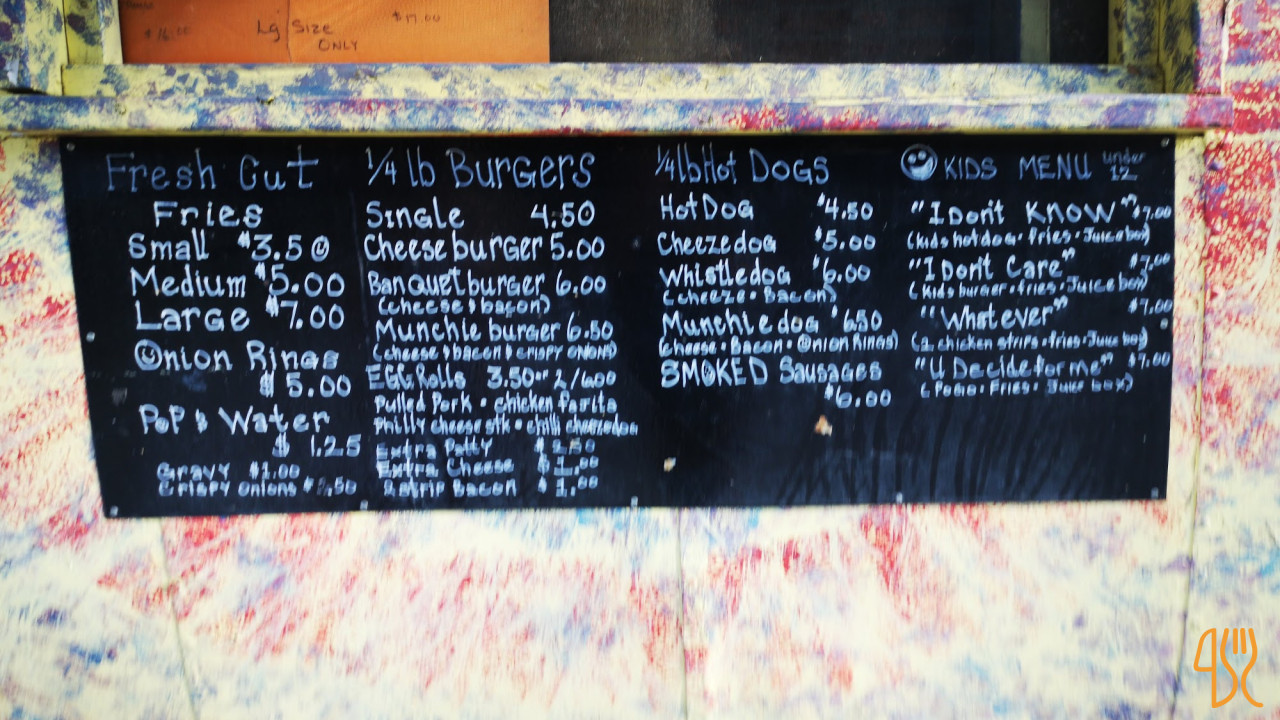 $16.00
Lg Size
ONLY
$17.00
Fresh Cut
Fries
Small $3.50
Medium $5.00
Large $7.00
Onion Rings
$5.00
POP & Water
$1.25
Gravy $1.00
Crispy onions
1/4 lb Burgers
Single 4.50
Cheeseburger 5.00
Banquetburger 6.00
(cheese & bacon)
Munchie burger 6.50
(cheese & bacon & CRISPY ONIONS)
EGG Rolls 3.50 or 2/6.00
Pulled Pork • chicken fajita
Philly cheese stk • chilli cheezedog
Extra Patty
Extra Cheese $1.00
2 strip Bacon $1.00
1/4 lb Hot DOGS
Hot Dog $4.50
Cheezedog $5.00
Whistledog $6.00
(cheeze • Bacon)
Munchie dog $6.50
(cheese • Bacon • Onion Rings)
SMOKED Sausages
$6.00
KIDS MENU under 12
"I Don't KNOW" $7.00
(kids hotdog • fries • Juice box)
"I Don't Care" $7.00
(kids burger • fries • Juice box)
"Whatever" $7.00
(2 chicken strips • fries • Juice box)
"U Decide for me" $7.00
(Pogo • Fries • Juice box)